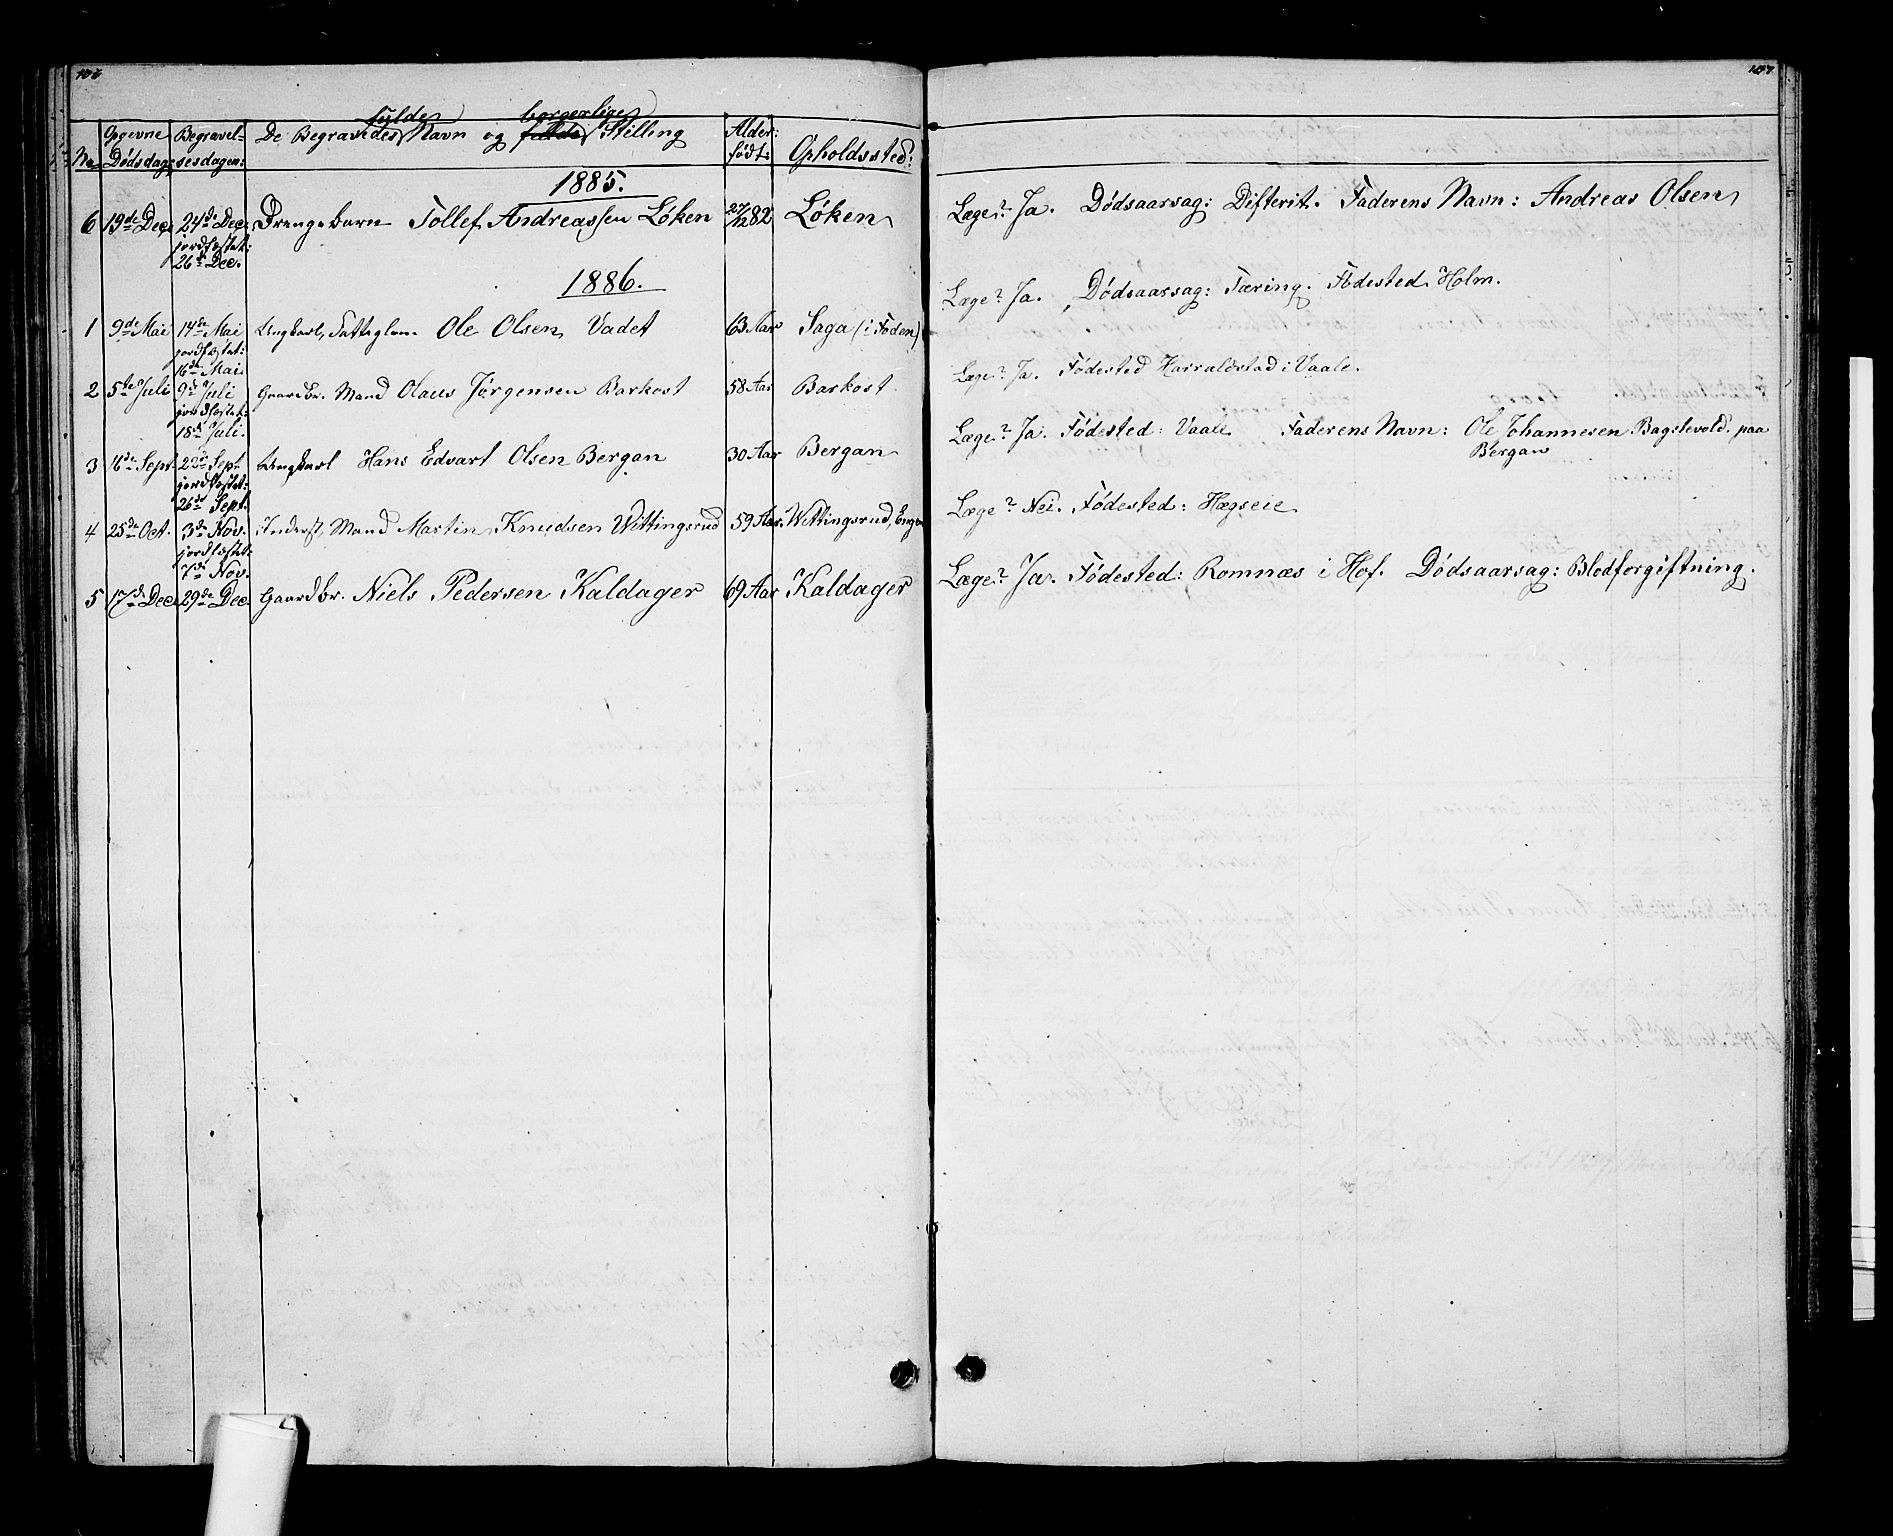 107
fulde borgerlige
Opgevne Begravel- De Begravedes Navn og fulde Stilling Alder:
No Dødsdag: sesdagen: født: Opholdssted:
1885.
6 19de Dec. 24de Dec. Drengebarn Tollef Andreassen Løken 27/12 82 Løken Læge? Ja. Dødsaarsag: Difterit. Faderens Navn: Andreas Olsen
jordfæstet:
26de Dec.
1886.
1 9de Mai 14de Mai Ungkarl, Fattiglem. Ole Olsen Vadet 63 Aar Saga (i Foden) Læge? Ja. Dødsaarsag: Tæring. Fødested Holm.
jordfæstet:
16de Mai
2 5te Juli 9de Juli Gaardbr. Mand Olaus Jørgensen Barkost 58 Aar Barkost Læge? Ja. Fødested Harraldstad i Vaale.
jordfæstet:
18de Juli.
3 16de Sept. 22de Sept Ungkarl Hans Edvart Olsen Bergan 30 Aar Bergan Læge? Ja. Fødested: Vaale Faderens Navn: Ole Johannesen Bagstevold. paa
Bergan
jordfæstet:
26de Sept.
4 25de Oct. 3de Nov. Inderst, Mand Martin Knudsen Wittingsrud 59 Aar. Wittingsrud, Læge? Nei. Fødested: Hægseie
jordfæstet:
7de Nov.
5 17de Dec. 29de Dec. Gaardbr. Niels Pedersen Kaldager 69 Aar Kaldager Læge? Ja. Fødested: Romnæs i Hof. Dødsaarsag: Blodforgiftning.